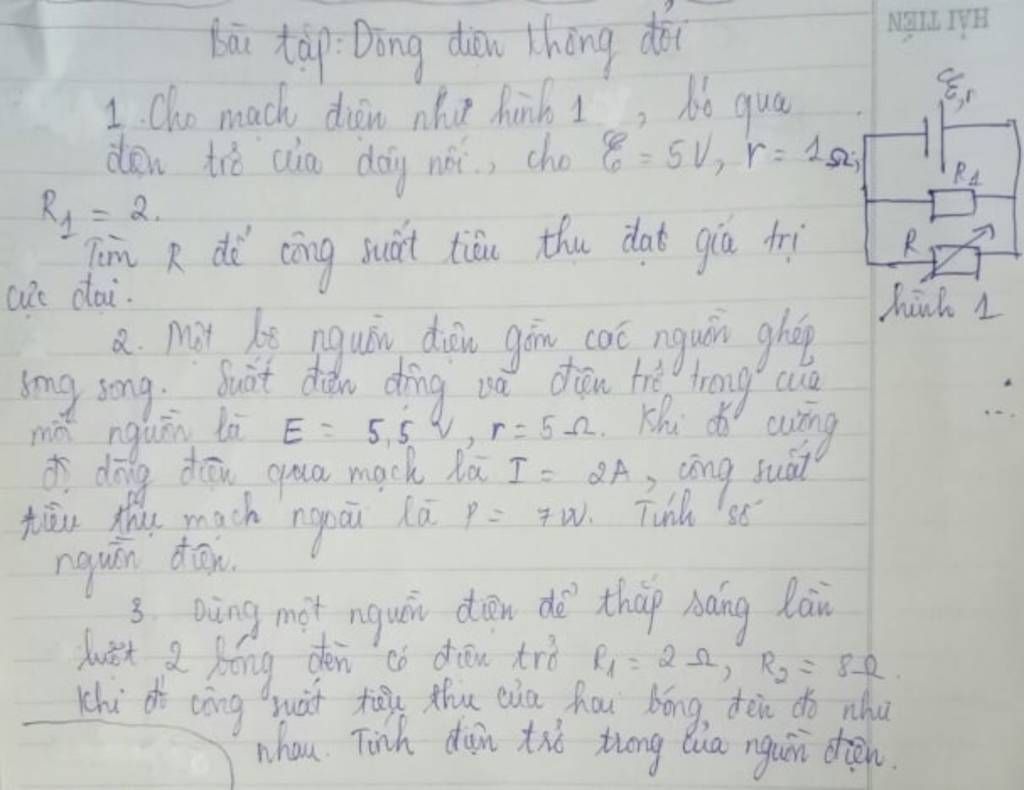 Bài tập: Dòng điện không đổi
HẢI TIẾN
1. Cho mạch điện như hình 1, bỏ qua
điện trở của dây nối, cho ℰ = 5V, r = 1Ω,
R1 = 2.
Tìm R để công suất tiêu thụ đạt giá trị
cực đại.
ℰ,r
R1
R
hình 1
2. Một bộ nguồn điện gồm các nguồn ghép
song song. Suất điện động và điện trở trong của
mỗi nguồn là E = 5,5 V, r = 5Ω. Khi đó cường
độ dòng điện qua mạch là I = 2A, công suất
tiêu thụ mạch ngoài là P = 7W. Tính số
nguồn điện.
3. Dùng một nguồn điện để thắp sáng lần
lượt 2 bóng đèn có điện trở R1 = 2Ω, R2 = 8Ω.
Khi đó công suất tiêu thụ của hai bóng đèn đó như
nhau. Tính điện trở trong của nguồn điện.